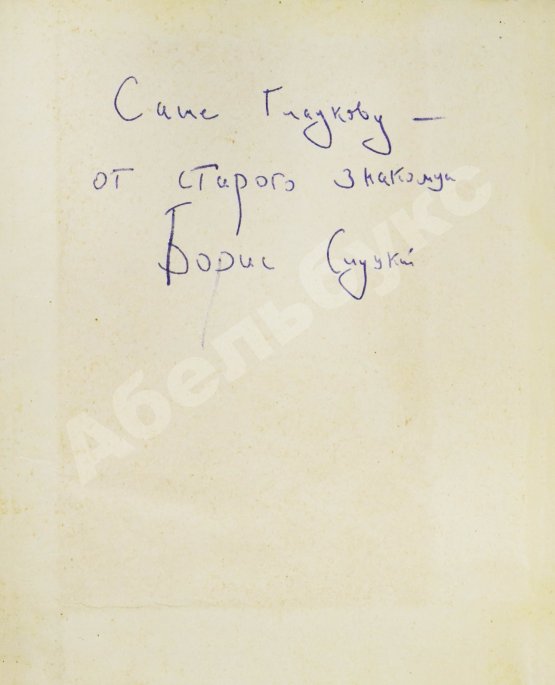 Саше Гладкову —
от старого знакомца
Борис Слуцкий
Абельбукс